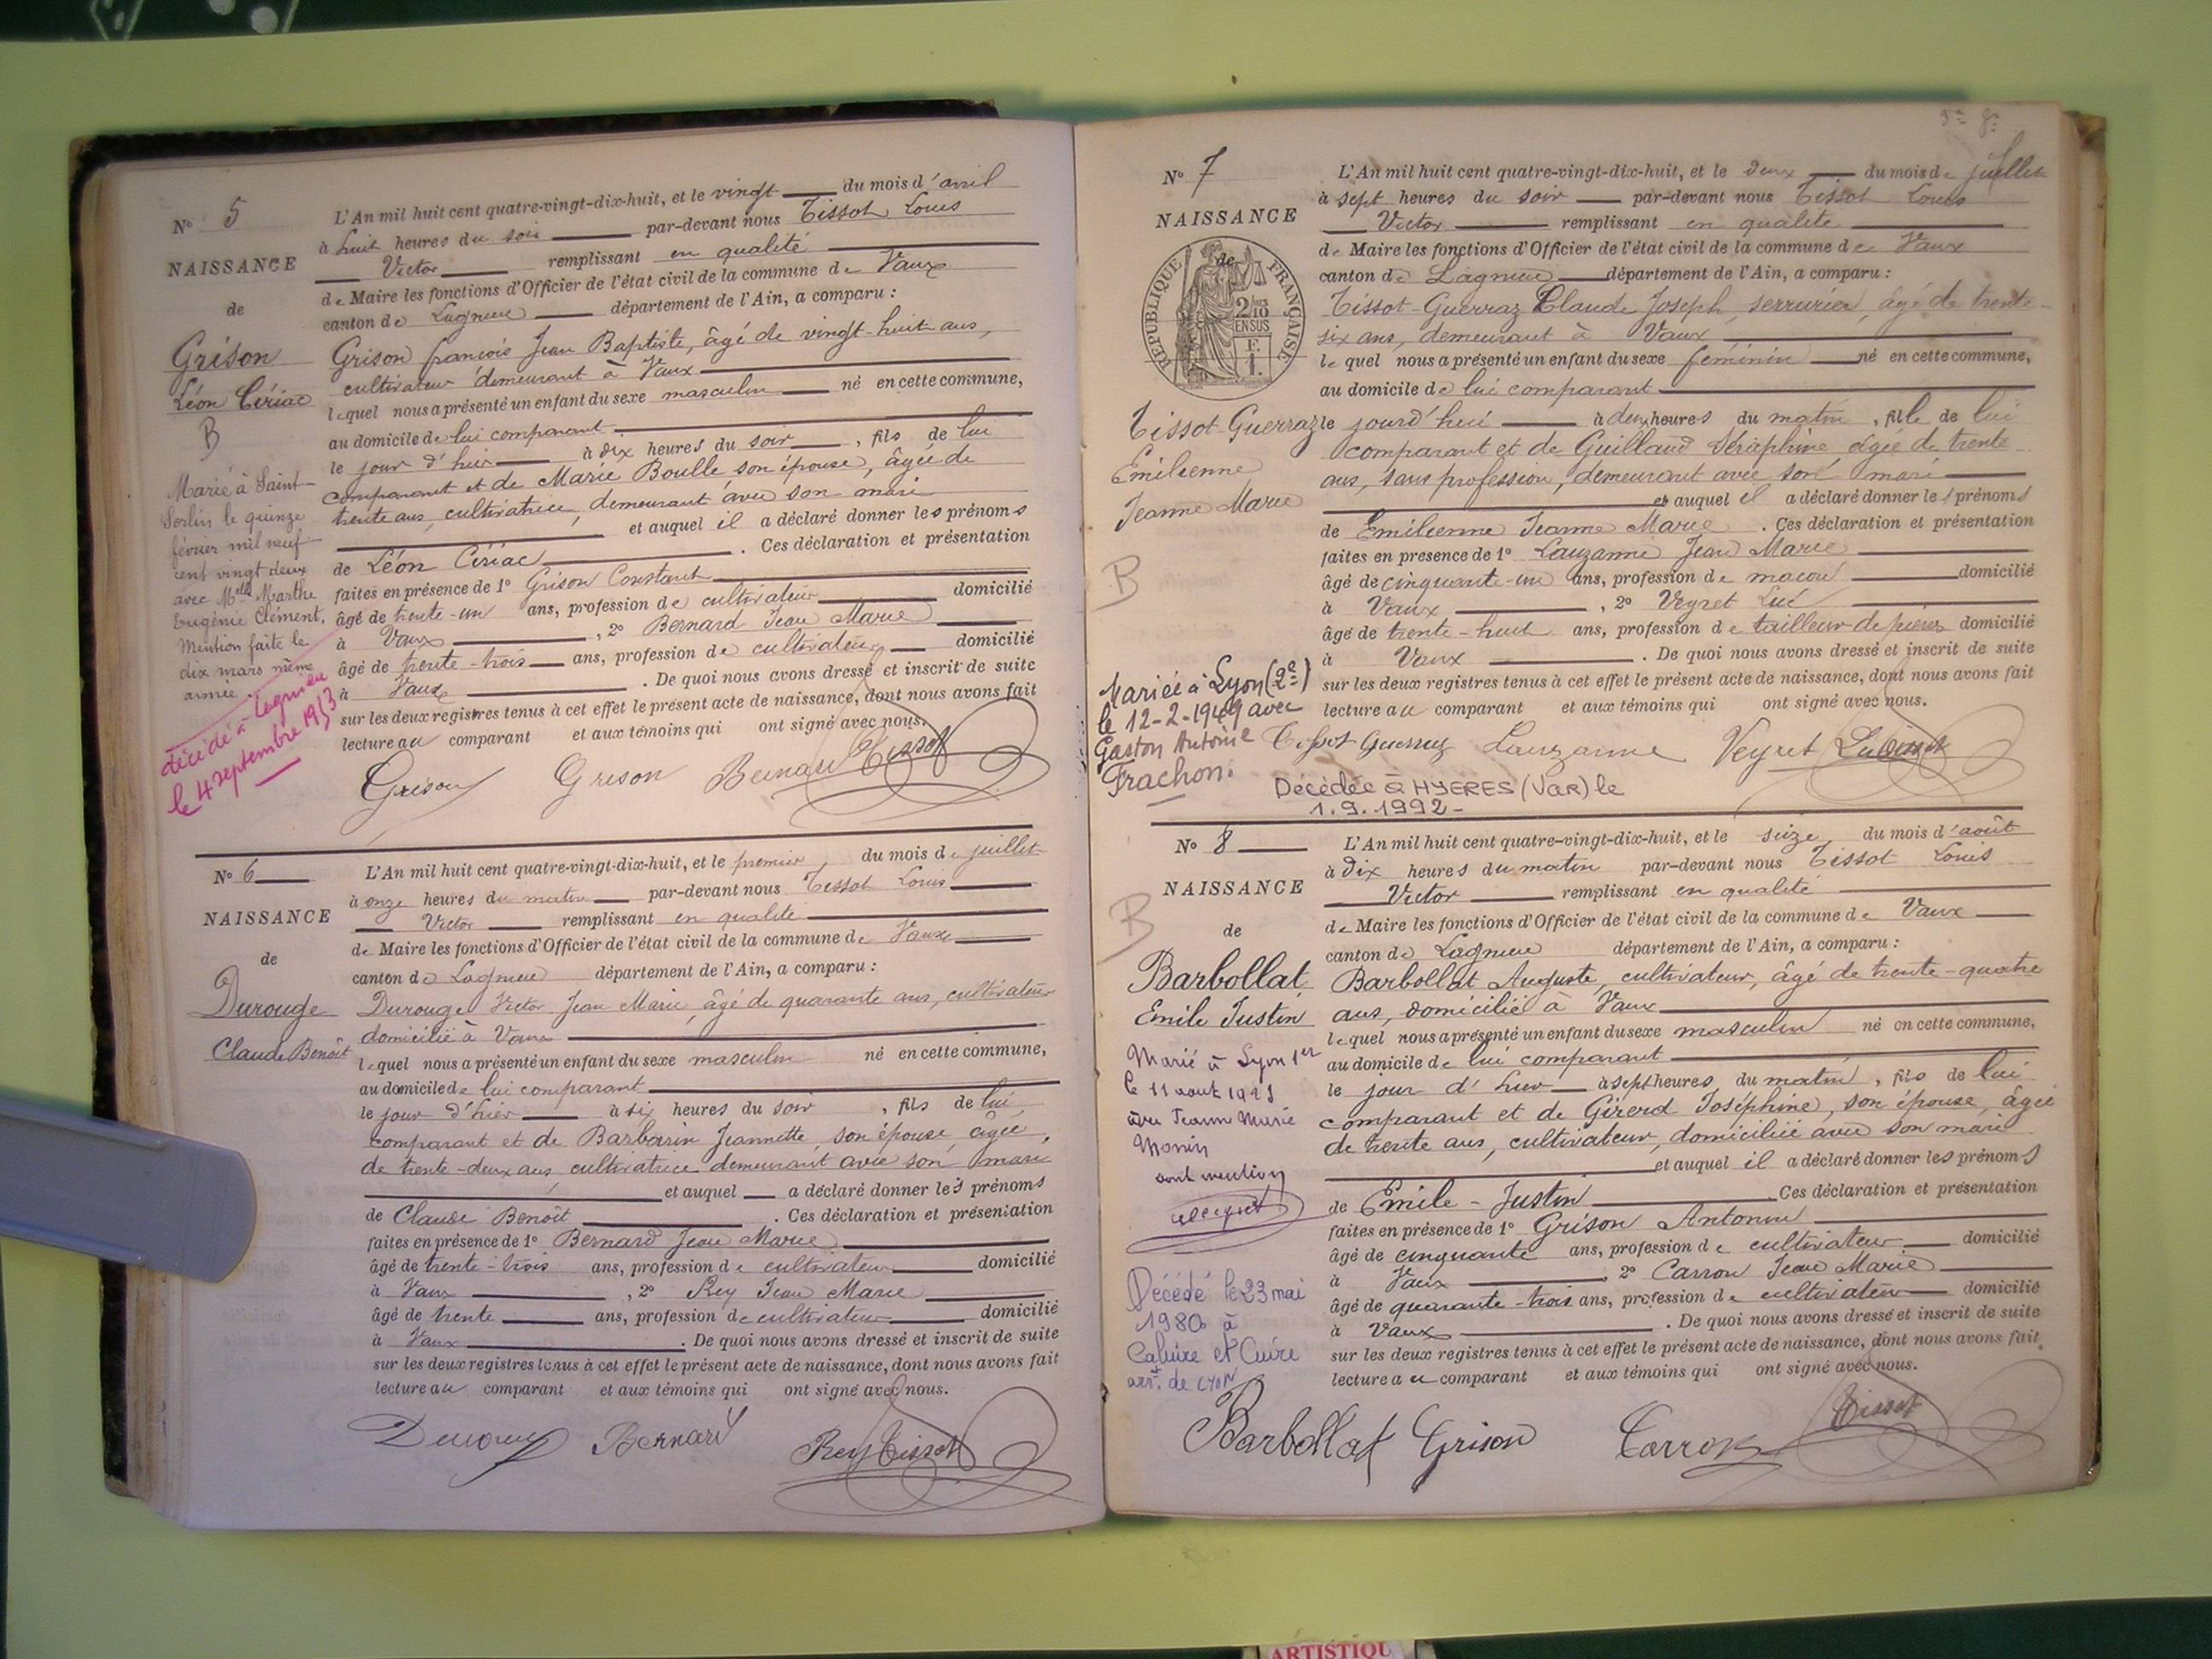 N° 5
NAISSANCE
de
Grison
Léon Ciriac
B
Marié à Saint-
Sorlin le quinze
février mil neuf
cent vingt deux
avec Mlle Marthe
Eugénie Clément.
Mention faite le
dix mars même
année.
décédé à Lagnieu
le 4 septembre 1953
L'An mil huit cent quatre-vingt-dix-huit, et le vingt du mois d'avril
à huit heures du soir par-devant nous Tissot Louis
Victor remplissant en qualité
de Maire les fonctions d'Officier de l'état civil de la commune de Vaux
canton de Lagnieu département de l'Ain, a comparu :
Grison françois Jean Baptiste, âgé de vingt-huit ans,
cultivateur demeurant à Vaux
lequel nous a présenté un enfant du sexe masculin né en cette commune,
au domicile de lui comparant
le jour d'hier à dix heures du soir, fils de lui
comparant et de Marie Boulle son épouse, âgée de
trente ans, cultivatrice, demeurant avec son mari
et auquel il a déclaré donner les prénoms
de Léon Ciriac. Ces déclaration et présentation
faites en présence de 1° Grison Constant
âgé de trente-un ans, profession de cultivateur domicilié
à Vaux, 2° Bernard Jean Marie
âgé de trente-trois ans, profession de cultivateur domicilié
à Vaux. De quoi nous avons dressé et inscrit de suite
sur les deux registres tenus à cet effet le présent acte de naissance, dont nous avons fait
lecture au comparant et aux témoins qui ont signé avec nous.
Grison Grison Bernard Tissot
N° 6
NAISSANCE
de
Durouge
Claude Benoît
L'An mil huit cent quatre-vingt-dix-huit, et le premier, du mois de juillet
à onze heures du matin par-devant nous Tissot Louis
Victor remplissant en qualité
de Maire les fonctions d'Officier de l'état civil de la commune de Vaux
canton de Lagnieu département de l'Ain, a comparu :
Durouge Victor Jean Marie, âgé de quarante ans, cultivateur
domicilié à Vaux
lequel nous a présenté un enfant du sexe masculin né en cette commune,
au domicile de lui comparant
le jour d'hier à six heures du soir, fils de lui
comparant et de Barbarin Jeannette, son épouse âgée,
de trente-deux ans, cultivatrice demeurant avec son mari
et auquel a déclaré donner les prénoms
de Claude Benoît. Ces déclaration et présentation
faites en présence de 1° Bernard Jean Marie
âgé de trente-trois ans, profession de cultivateur domicilié
à Vaux, 2° Rey Jean Marie
âgé de trente ans, profession de cultivateur domicilié
à Vaux. De quoi nous avons dressé et inscrit de suite
sur les deux registres tenus à cet effet le présent acte de naissance, dont nous avons fait
lecture au comparant et aux témoins qui ont signé avec nous.
Bernard Rey Tissot
N° 7
NAISSANCE
de
RÉPUBLIQUE FRANÇAISE
Tissot-Guerraz
Emilienne
Jeanne Marie
B
Mariée à Lyon (2e)
le 12-2-1949 avec
Gaston Antoine
Frachon.
L'An mil huit cent quatre-vingt-dix-huit, et le deux du mois de juillet
à sept heures du soir par-devant nous Tissot Louis
Victor remplissant en qualité
de Maire les fonctions d'Officier de l'état civil de la commune de Vaux
canton de Lagnieu département de l'Ain, a comparu :
Tissot-Guerraz Claude Joseph, serrurier, âgé de trente-
six ans, demeurant à Vaux
lequel nous a présenté un enfant du sexe feminin né en cette commune,
au domicile de lui comparant
le jourd'hui à deux heures du matin, fille de lui
comparant et de Guilland Séraphine, âgée de trente
ans, sans profession, demeurant avec son mari
et auquel il a déclaré donner les prénoms
de Emilienne Jeanne Marie. Ces déclaration et présentation
faites en présence de 1° Lauzanne Jean Marie
âgé de cinquante-un ans, profession de maçon domicilié
à Vaux, 2° Veyret Luc
âgé de trente-huit ans, profession de tailleur de pierres domicilié
à Vaux. De quoi nous avons dressé et inscrit de suite
sur les deux registres tenus à cet effet le présent acte de naissance, dont nous avons fait
lecture au comparant et aux témoins qui ont signé avec nous.
Tissot Guerraz Lauzanne Veyret Luc Tissot
Décédée à HYERES (Var) le
1.9.1992-
N° 8
NAISSANCE
B
de
Barbollat
Emile Justin
Marié à Lyon 1er
le 11 aout 1921
avec Jeanne Marie
Monin
dont mention
Décédé le 23 mai
1980 à
Caluire et Cuire
arrt. de LYON
L'An mil huit cent quatre-vingt-dix-huit, et le seize du mois d'août
à dix heures du matin par-devant nous Tissot Louis
Victor remplissant en qualité
de Maire les fonctions d'Officier de l'état civil de la commune de Vaux
canton de Lagnieu département de l'Ain, a comparu :
Barbollat Auguste, cultivateur, âgé de trente-quatre
ans, domicilié à Vaux
lequel nous a présenté un enfant du sexe masculin né en cette commune,
au domicile de lui comparant
le jour d'hier à sept heures du matin, fils de lui
comparant et de Girerd Joséphine, son épouse, âgée
de trente ans, cultivateur, domiciliée avec son mari
et auquel il a déclaré donner les prénoms
de Emile-Justin Ces déclaration et présentation
faites en présence de 1° Grison Antonin
âgé de cinquante ans, profession de cultivateur domicilié
à Vaux, 2° Carron Jean Marie
âgé de quarante-trois ans, profession de cultivateur domicilié
à Vaux. De quoi nous avons dressé et inscrit de suite
sur les deux registres tenus à cet effet le présent acte de naissance, dont nous avons fait
lecture au comparant et aux témoins qui ont signé avec nous.
Barbollat Grison Carron Tissot
ARTISTIQU